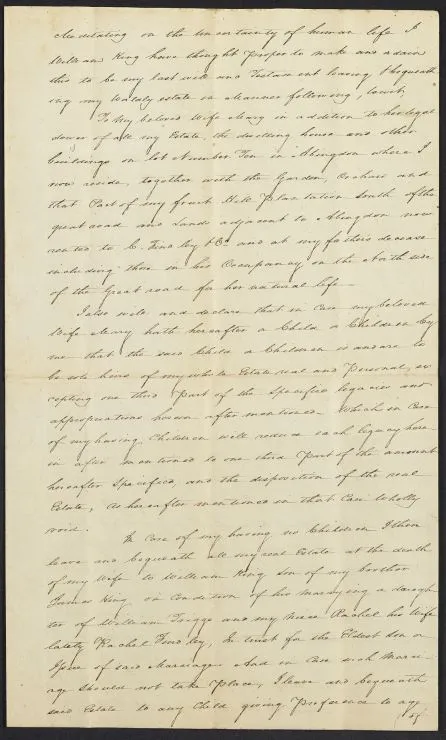 Meditating on the uncertainty of human life I
William King have thought proper to make and ordain
this to be my last will and Testament leaving & bequeath
ing my Wordly estate in Manner following, towit,
To My beloved wife Mary in addition to her legal
dower of all my Estate, the dwelling house and other
buildings on lot Number Ten in Abingdon where I
now reside, together with the Garden, Orchard and
that Part of my fruit Hill Plantation South of the
great road and Lands adjacent to Abingdon now
rented to C. Findley & Co and at my fathers decease
including those in his Occupancy on the North side
of the Great road for her natural life -
I also will and declare that in Case my beloved
Wife Mary hath hereafter a Child or Children by
me that the said Child or Children is and are to
be sole heirs of my whole Estate real and Personal, ex
cepting one third Part of the Specified legacies and
appropriations herein after mentioned - Which in Case
of my having Children will reduce each legacy here
in after mentioned to one third Part of the amount
hereafter Specified, and the disposition of the real
Estate, as hereafter mentioned in that Case Wholly
void.
In Case of my having no Children I then
leave and bequeath all my real Estate at the death
of my Wife to William King son of my brother
James King on Condition of his marrying a daugh
ter of William Trigg and my Niece Rachel his Wife
lately Rachel Findley, In trust for the Eldest son or
Issue of said Marriage - And in Case such Marri
age Should not take Place, I leave and bequeath
said Estate to any Child giving Preference to age